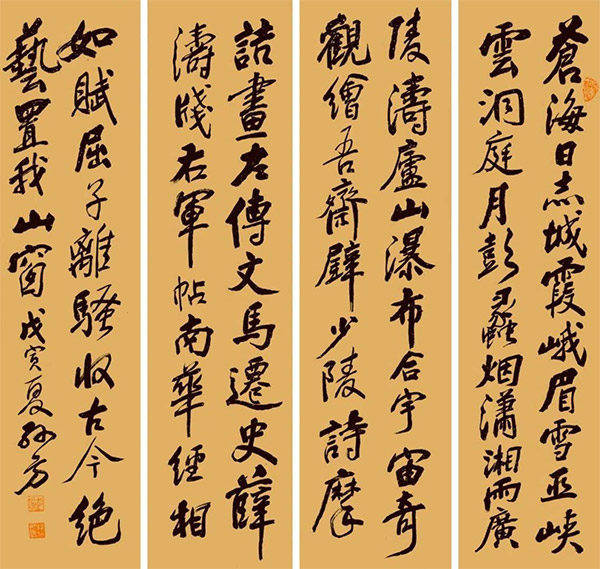 蒼海日赤城霞峨眉雪巫峽
雲洞庭月彭蠡烟瀟湘雨廣
陵濤廬山瀑布合宇宙奇
觀繪吾齋壁少陵詩摩
詰畫左傳文馬遷史薛
濤牋右軍帖南華經相
如賦屈子離騷收古今絕
藝置我山窗戊寅夏孫方